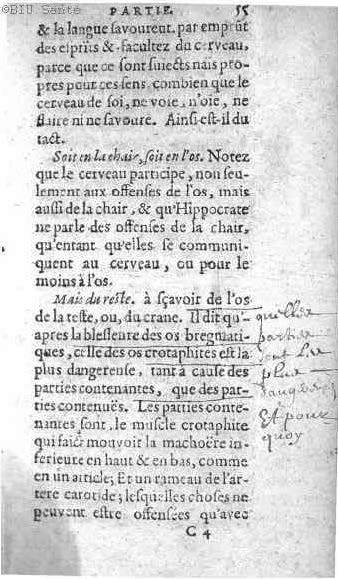 ©BIU Santé
PARTIE. 55
& la langue savourent, par emprũt
des esprits & facultez du cerveau,
parce que ce sont suiects nais pro-
pres pour ces sens combien que le
cerveau de soi, ne voie, n'oie, ne
flaire ni ne savoure. Ainsi est-il du
tact.
Soit en la chair, soit en l'os. Notez
que le cerveau participe, non seu-
lement aux offenses de l'os, mais
aussi de la chair, & qu'Hippocrate
ne parle des offenses de la chair,
qu'entant qu'elles se communi-
quent au cerveau, ou pour le
moins à l'os.
Mais du reste. à sçavoir de l'os
de la teste, ou, du crane. Il dit qu'-
apres la blesseure des os bregmati-
ques, celle des os crotaphites est la
plus dangereuse, tant à cause des
parties contenantes, que des par-
ties contenuës. Les parties conte-
nantes sont, le muscle crotaphite
qui faict mouvoir la machoëre in-
ferieure en haut & en bas, comme
en un article; Et un rameau de l'ar-
tere carotide; lesquelles choses ne
peuvent estre offensées qu'avec
C 4
quelles
parties
sont les
plus
dangere
Et pour
quoy